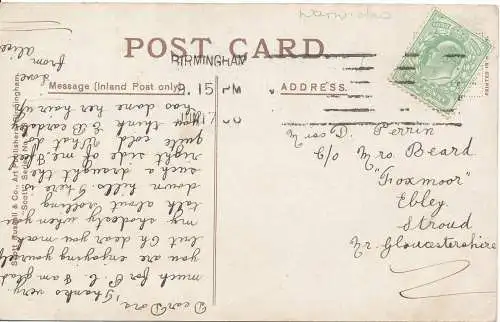 Warwicks
POST CARD.
BIRMINGHAM
9.15 PM
Message (Inland Post only).
ADDRESS.
Perrin
C/o Mrs Beard
"Foxmoor"
Ebley
Stroud
Nr. Gloucestershire
Dear Dora
Thanks very
much for P.C. I am glad
you are enjoying yourself
but Oh dear you mark
my when you
talk about rolling
down hills. There is
such a draught the
right side of me. I feel
quite cold. What do
you think E Beardsley
has done her hair up
love
from
Alice
Scott Russell & Co., Art Publishers, Birmingham.
"Scotts" Series No.
PRINTED IN